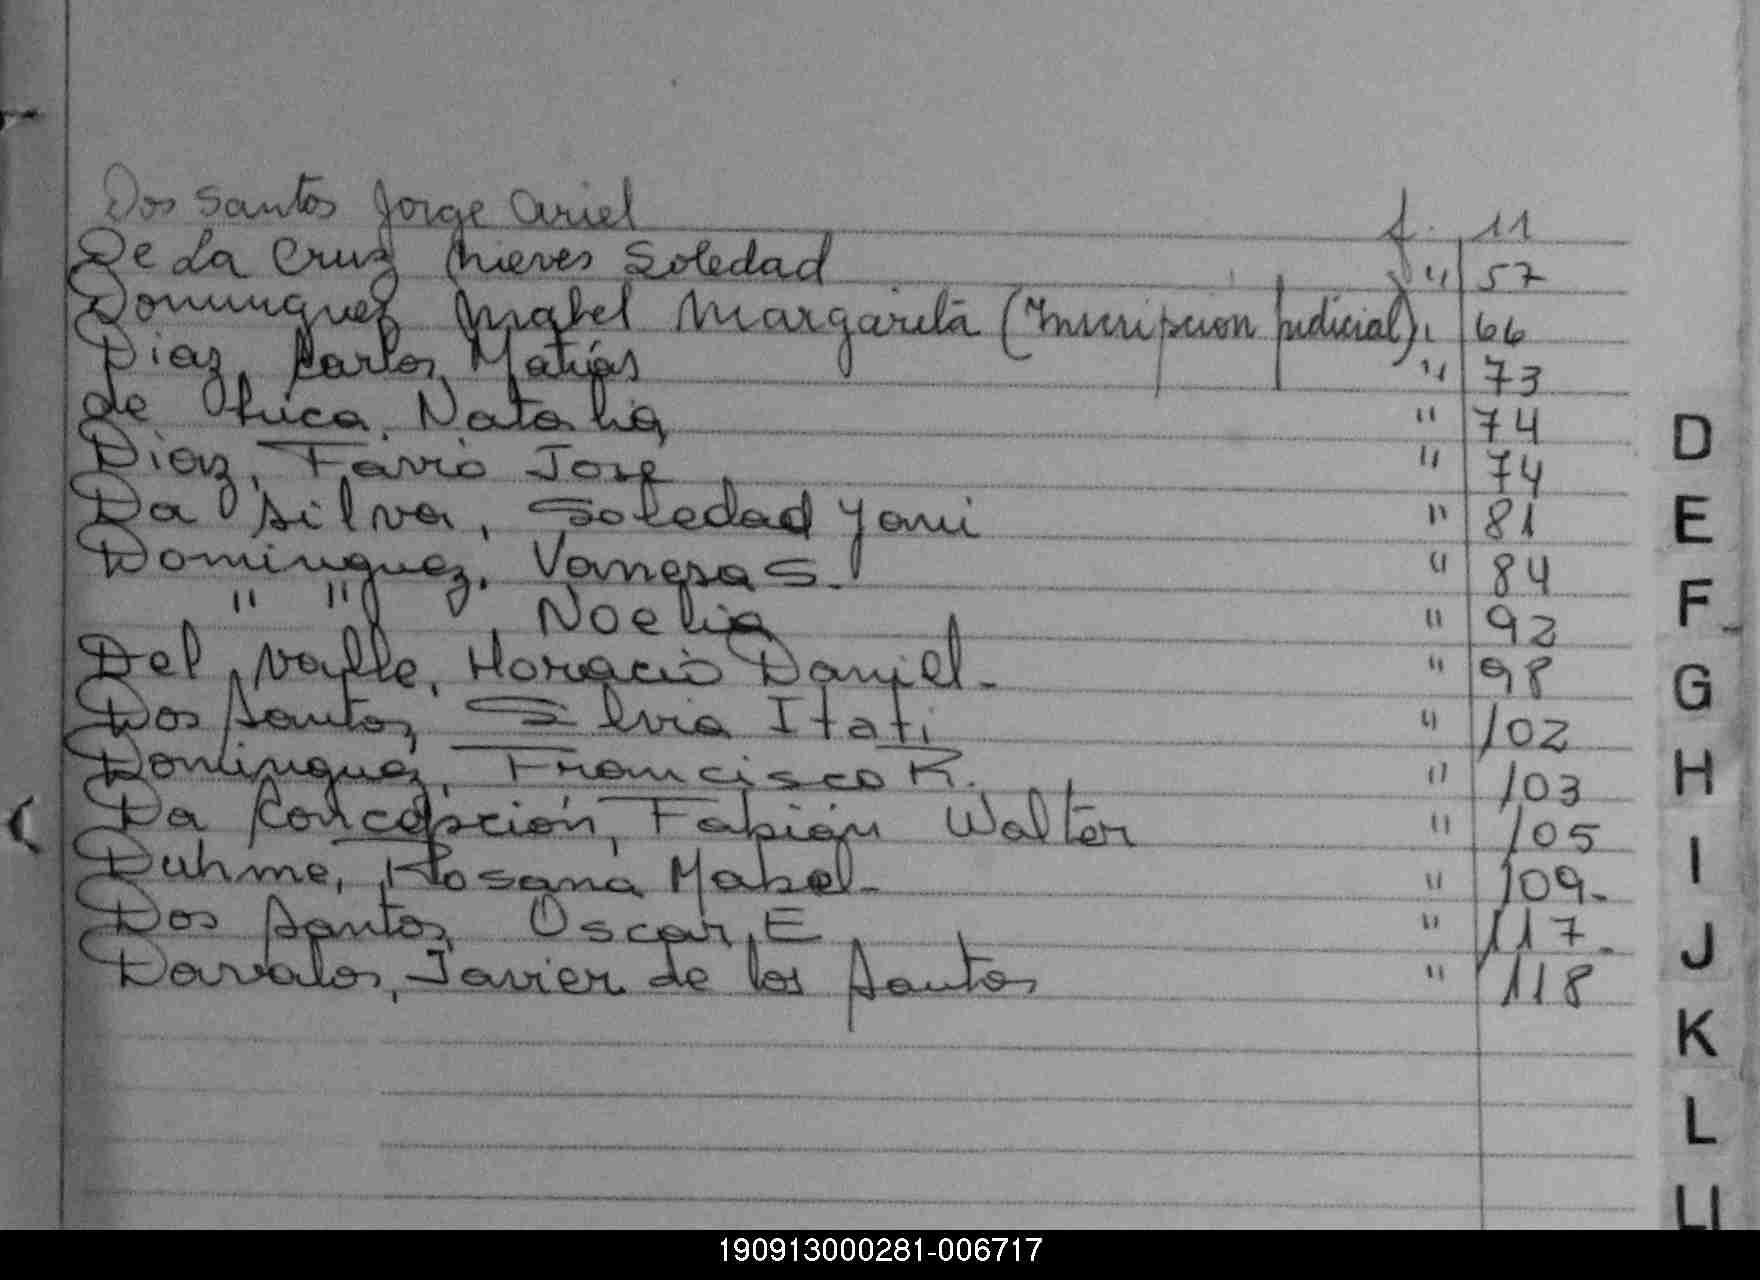 Dos Santos Jorge Ariel f. 11
De La Cruz Nieves Soledad " 57
Dominguez Mabel Margarita (Inscripcion Judicial) " 66
Diaz, Carlos Matías " 73
de Luca, Natalia " 74
Diaz, Favio Jose " 74
Da Silva, Soledad Yani " 81
Dominguez, Vanesa S. " 84
" " Noelia " 92
Del Valle, Horacio Daniel - " 98
Dos Santos, Silvia Itati " 102
Dominguez, Francisco R. " 103
Da Concepción, Fabián Walter " 105
Duhme, Rosana Mabel - " 109-
Dos Santos, Oscar E " 117-
Davalos, Javier de los Santos " 118
D
E
F
G
H
I
J
K
L
LL
190913000281-006717